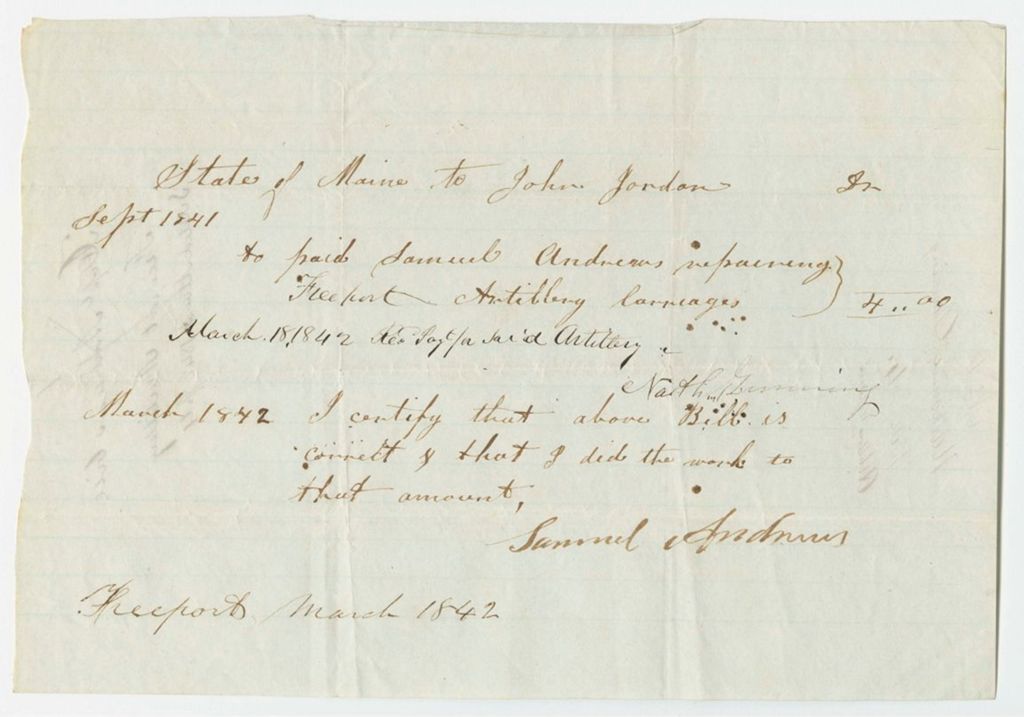 State of Maine to John Jordan Dr
Sept 1841
to paid Samuel Andrews repairing
Freeport Artillery Carriages 4..00
March. 18, 1842 said Artillery
Nath
March 1842 I certify that above Bill is
correct & that I did the work to
that amount,
Samuel Andrews
Freeport March 1842